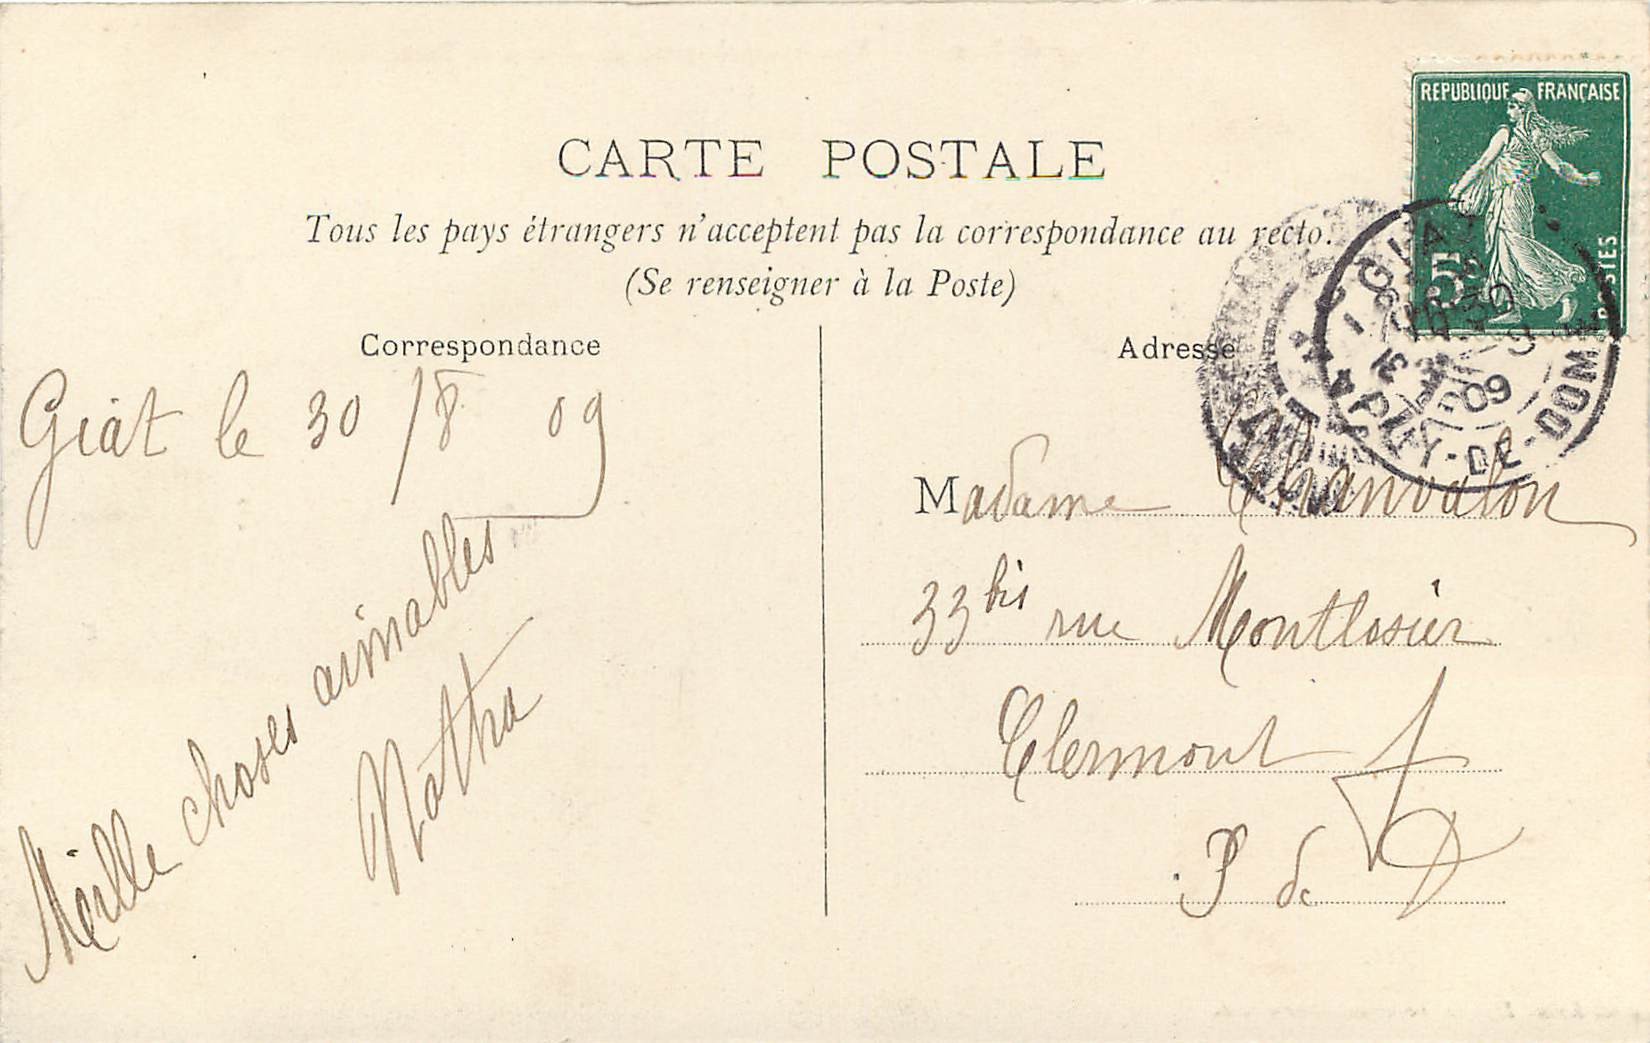 CARTE POSTALE
Tous les pays étrangers n'acceptent pas la correspondance au recto.
(Se renseigner à la Poste)
REPUBLIQUE FRANÇAISE
5c
POSTES
GIAT
30
09
PUY-DE-DOME
Correspondance
Giat le 30/8 09
Mille choses aimables
Natha
Adresse
Madame Chanvalon
33 bis rue Montlosier
Clermont F
P de D